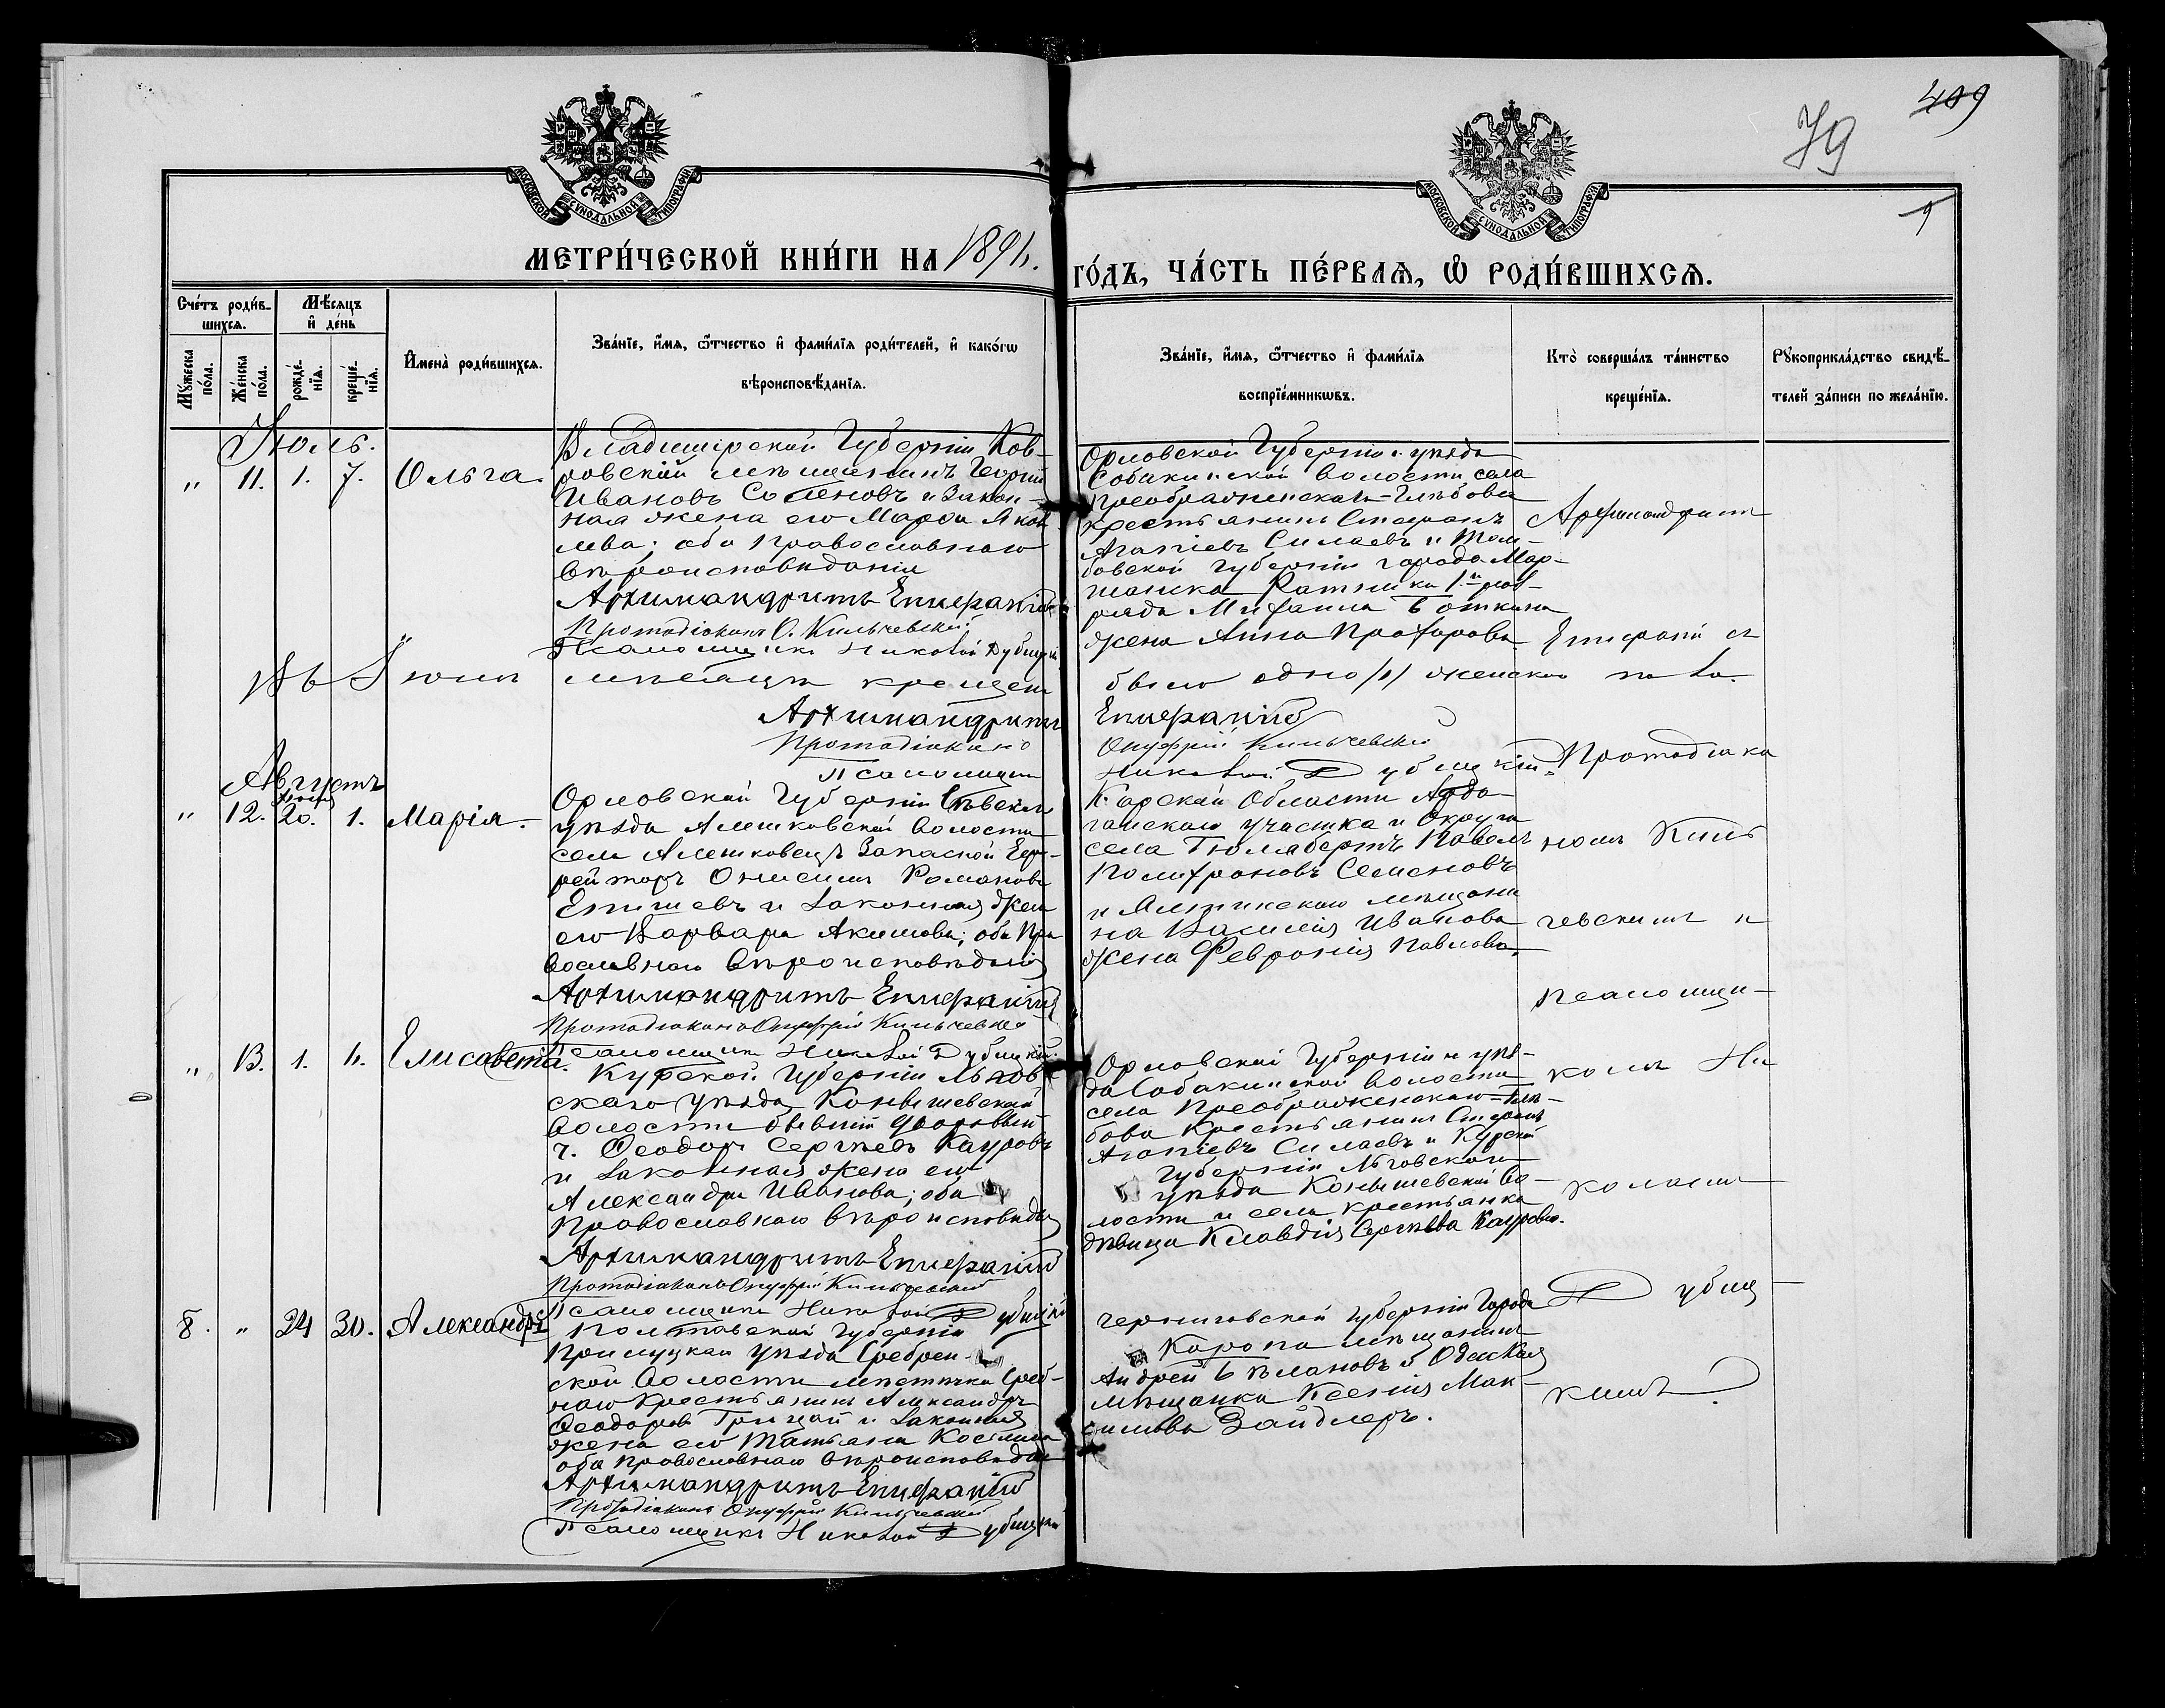 409
79
9
МОСКОВСКОЙ СУНОДАЛЬНОЙ ТИПОГРАФІИ
МОСКОВСКОЙ СУНОДАЛЬНОЙ ТИПОГРАФІИ
МЕТРИ́ЧЕСКОЙ КНИ́ГИ НА 1894.
ГО́ДЪ, ЧА́СТЬ ПЕ́РВАѦ, Ѡ҆ РОДИ́ВШИХСѦ.
Сче́тъ роди́в-
шихсѧ.
Мѣ́сѧцъ
и҆ де́нь
Мꙋ́жеска по́ла.
Же́нска по́ла.
рожде́-нїѧ.
креще́-нїѧ.
И҆мена̀ роди́вшихсѧ.
Зва́нїе, и҆́мѧ, ѻ҆́тчество и҆ фами́лїѧ роди́телей, и҆ како́гѡ
вѣроисповѣ́данїѧ.
Зва́нїе, и҆́мѧ, ѻ҆́тчество и҆ фами́лїѧ
воспрїе́мникѡвъ.
Кто̀ соверша́лъ та́инство
креще́нїѧ.
Рꙋкоприкла́дство свидѣ́-
телей за́писи по жела́нїю.
Іюль.
" 11. 1. 7. Ольга.
Владимірской Губерніи Ков-
ровскій мѣщанинъ Георгій
Ивановъ и закон-
ная жена его Марѳа Яков
лева; оба православнаго
вѣроисповѣданія
Архимандритъ Епифаній
Протодіаконъ О. Кильчевскій
Псаломщикъ Николай Дубицкій
Орловской Губерніи и уѣзда
Собакинской волости села
Преображенскаго-Глѣбова
крестьянинъ Стефанъ
Агапіевъ Силаевъ и Там-
бовской губерніи города Мор-
шанска Ратника 1-го раз-
ряда Михаила
жена Анна Прохорова
Архимандритъ
Епифаній съ
Въ Іюлѣ мѣсяцѣ крещено
было одно /1/ женскаго пола.
Архимандритъ Епифаній
Протодіаконъ Онуфрій Кильчевскій
Псаломщикъ Николай Дубицкій.
Протодіако
Августъ
" 12. Іюля 20. 1. Марія.
Орловской Губерніи Сѣвскаго
уѣзда Алешковской волости
села Алешковецъ Запасной Еф-
рейторъ Онисимъ Романовъ
и законная жена
его Варвара Акимова; оба Пра
вославнаго вѣроисповѣданія
Архимандритъ Епифаній
Протодіаконъ Онуфрій Кильчевскій
Псаломщикъ Николай Дубицкій.
Карской Области Арда-
ганскаго участка и Округа
села Павелъ
Семеновъ
и мѣщани
на Василія Иванова
жена Февронія Павлова.
номъ Киль
чевскимъ и
псаломщи-
" 13. 1. 4. Елисавета.
Курской Губерніи Льгов
скаго уѣзда Конышевской
волости бывшій дворовый
ч. Ѳеодоръ Сергѣевъ Кауровъ
и законная жена его
Александра Иванова; оба
Православнаго вѣроисповѣд
Архимандритъ Епифаній
Протодіаконъ Онуфрій Кильчевскій
Псаломщикъ Николай Дубицкій
Орловской Губерніи и уѣз-
да Собакинской волости
села Преображенскаго-Глѣ-
бова Крестьянинъ Стефанъ
Агапіевъ Силаевъ и Курской
Губерніи Льговскаго
уѣзда Конышевской во-
лости и села крестьянка
дѣвица Клавдія Сергѣева Каурова.
комъ Ни
колаемъ
8. " 24 30. Александръ
Полтавской Губерніи
Прилуцкаго уѣзда Сребрен-
ской волости мѣстечка Среб-
наго Крестьянинъ Александръ
Ѳеодоровъ Грицай и законная
жена его Татьяна
оба православнаго вѣроисповѣдан
Архимандритъ Епифаній
Протодіаконъ Онуфрій Кильчевскій
Псаломщикъ Николай Дубицкій
Черниговской Губерніи Города
Коропа мѣщанинъ
Андрей и Одесская
мѣщанка Ксенія Мак-
симова Зайдлеръ.
Дубиц-
кимъ.